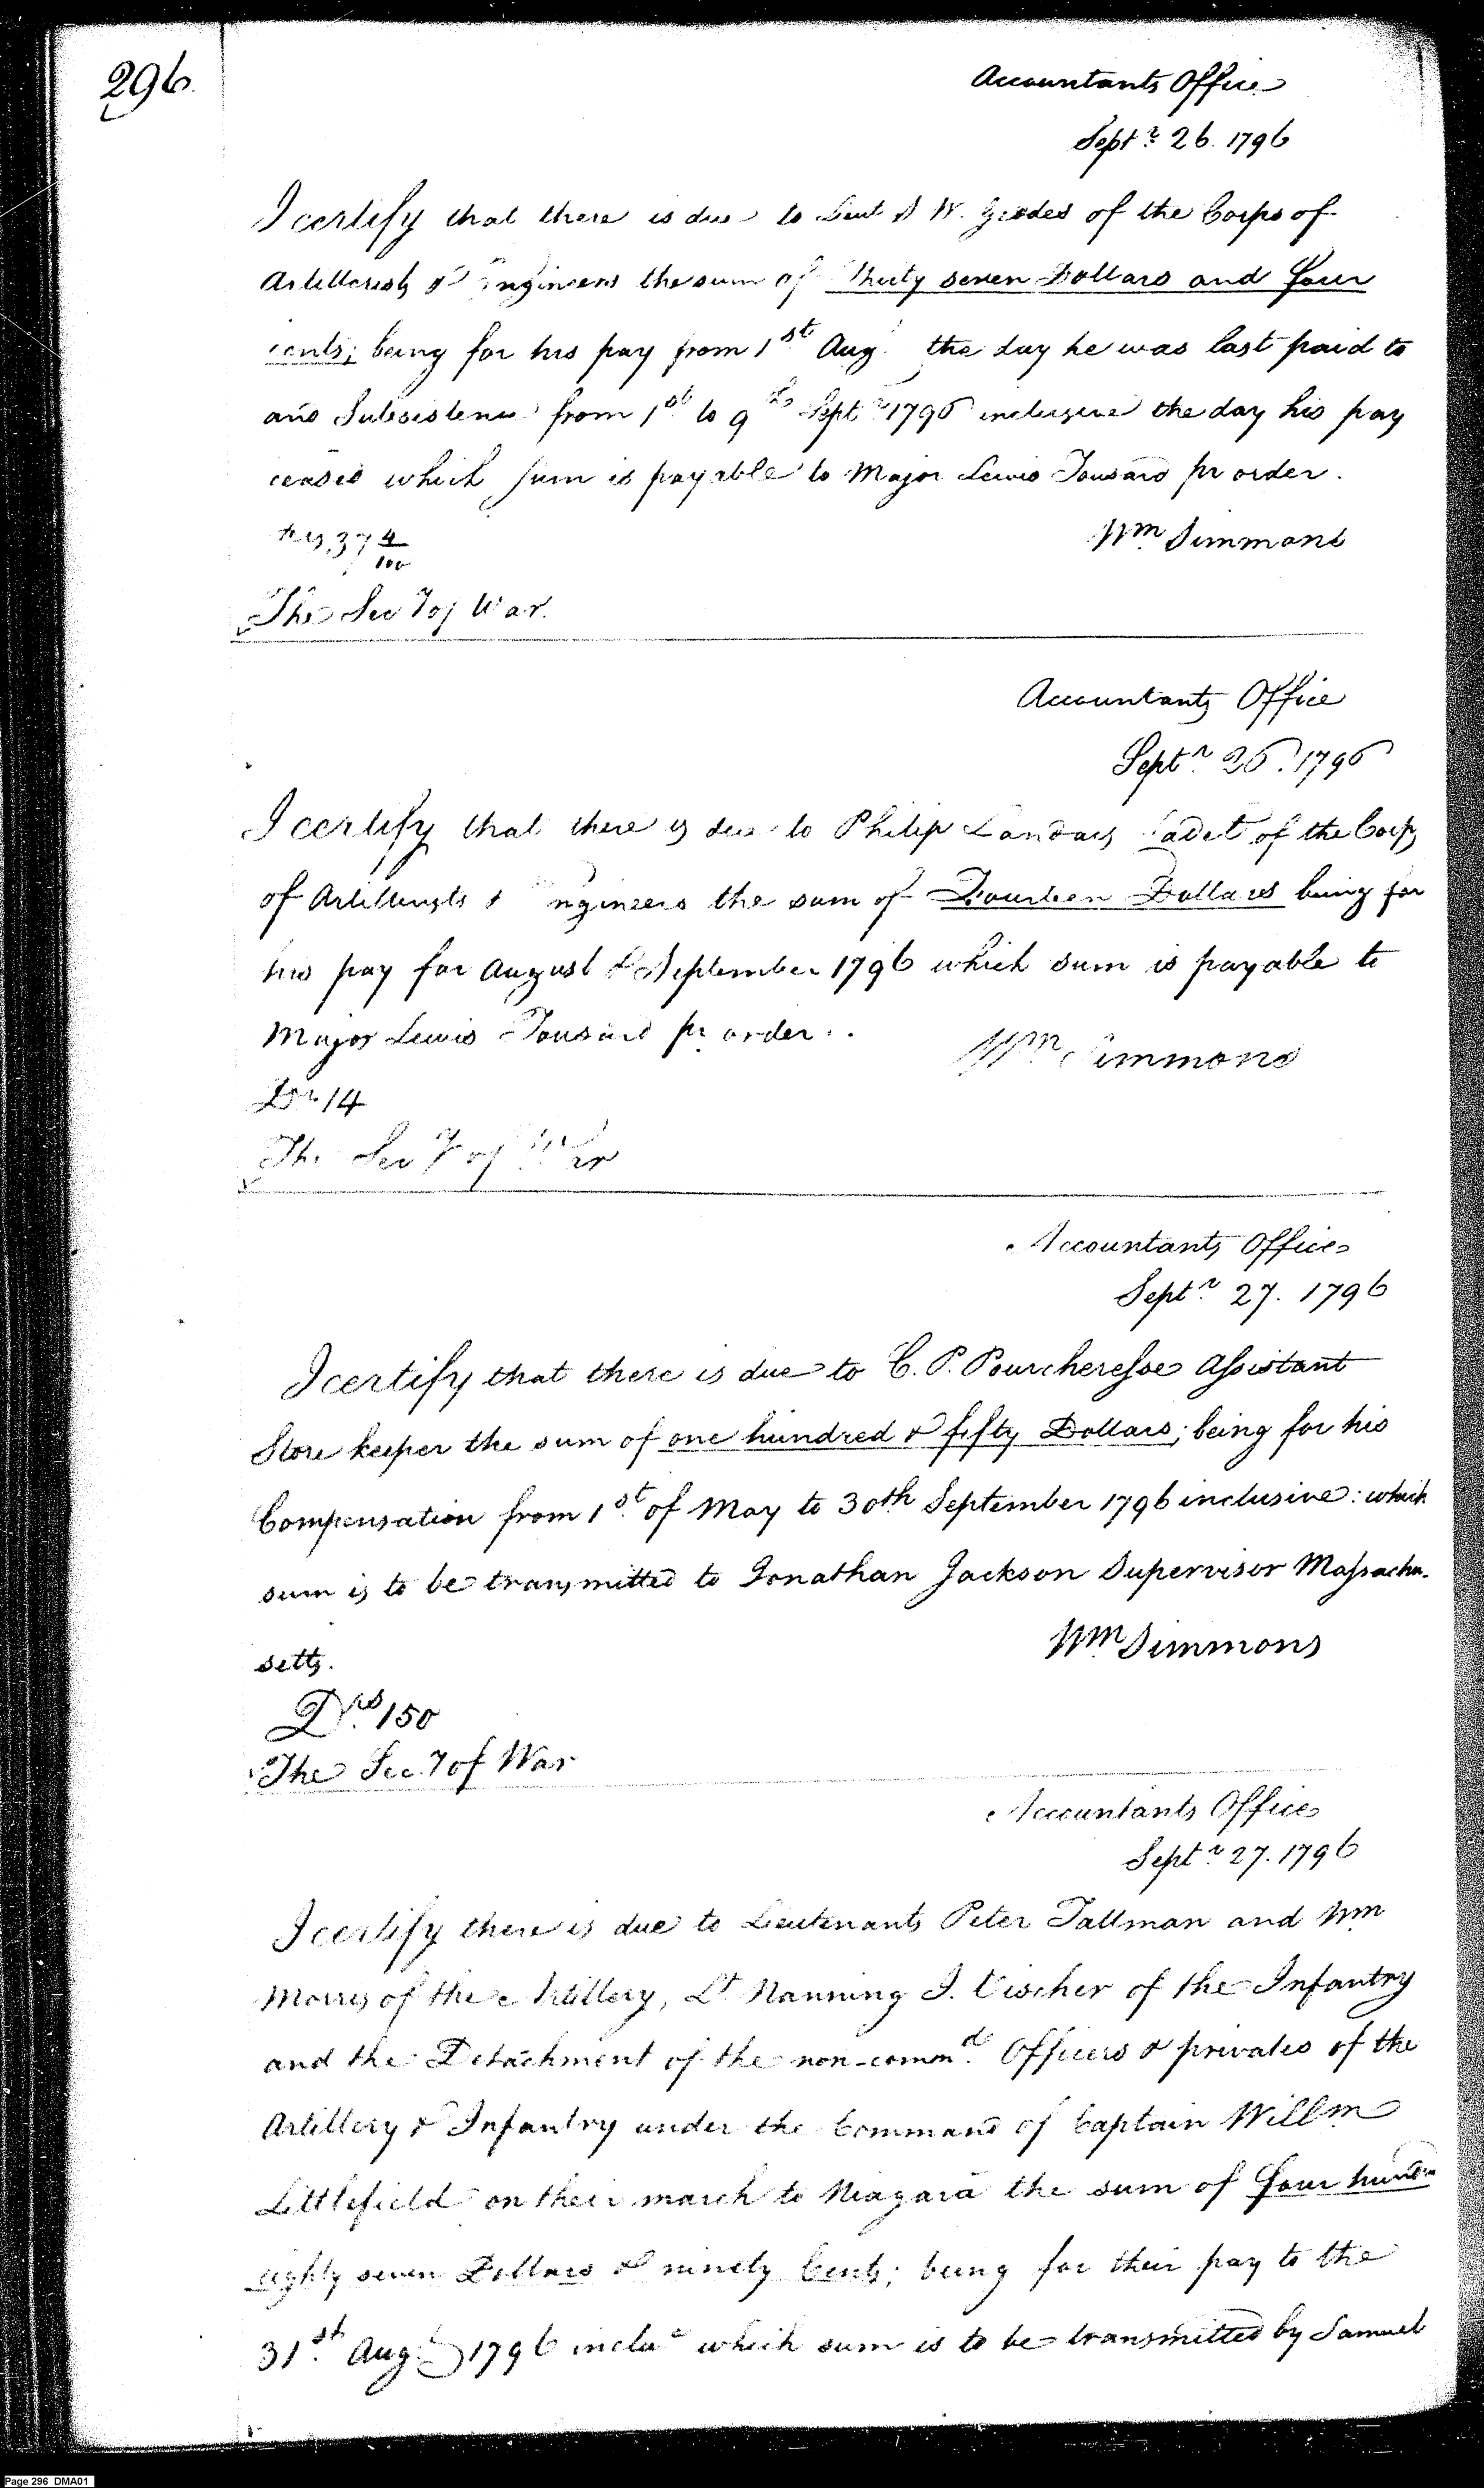 296.
Accountants Office
Septr. 26. 1796
I certify that there is due to Lieut S W. Geddes of the Corps of
Artillerists & Engineers the sum of Thirty seven Dollars and four
cents; being for his pay from 1st. Aug. the day he was last paid to
and Subsistence from 1st to 9th Septr 1796 inclusive the day his pay
ceased which sum is payable to Major Lewis Tousard pr order.
37 4/100
Wm Simmons
The Secy of War.
Accountants Office
Septr. 26. 1796
I certify that there is due to Philip Landais Cadet of the Corps
of Artillerists & Engineers the sum of Fourteen Dollars being for
his pay for August & September 1796 which sum is payable to
Major Lewis Tousard pr order..
Wm Simmons
Drs. 14
The Secy of War
Accountants Office
Septr. 27. 1796
I certify that there is due to C. P. Pourcheresse Assistant
Store keeper the sum of one hundred & fifty Dollars; being for his
Compensation from 1st. of May to 30th September 1796 inclusive: which
sum is to be transmitted to Jonathan Jackson Supervisor Massachu-
setts.
Wm Simmons
Drs. 150
The Sec.y of War
Accountants Office
Septr. 27. 1796
I certify there is due to Lieutenants Peter Tallman and Wm
Morris of the Artillery, Lt. Nanning J. Visscher of the Infantry
and the Detachment of the non-commd. Officers & privates of the
Artillery & Infantry under the Command of Captain Willm
Littlefield on their march to Niagara the sum of four hundr
eighty seven Dollars & ninety Cents; being for their pay to the
31st. Aug. 1796 inclue which sum is to be transmitted by Samuel
Page 296 DMA01